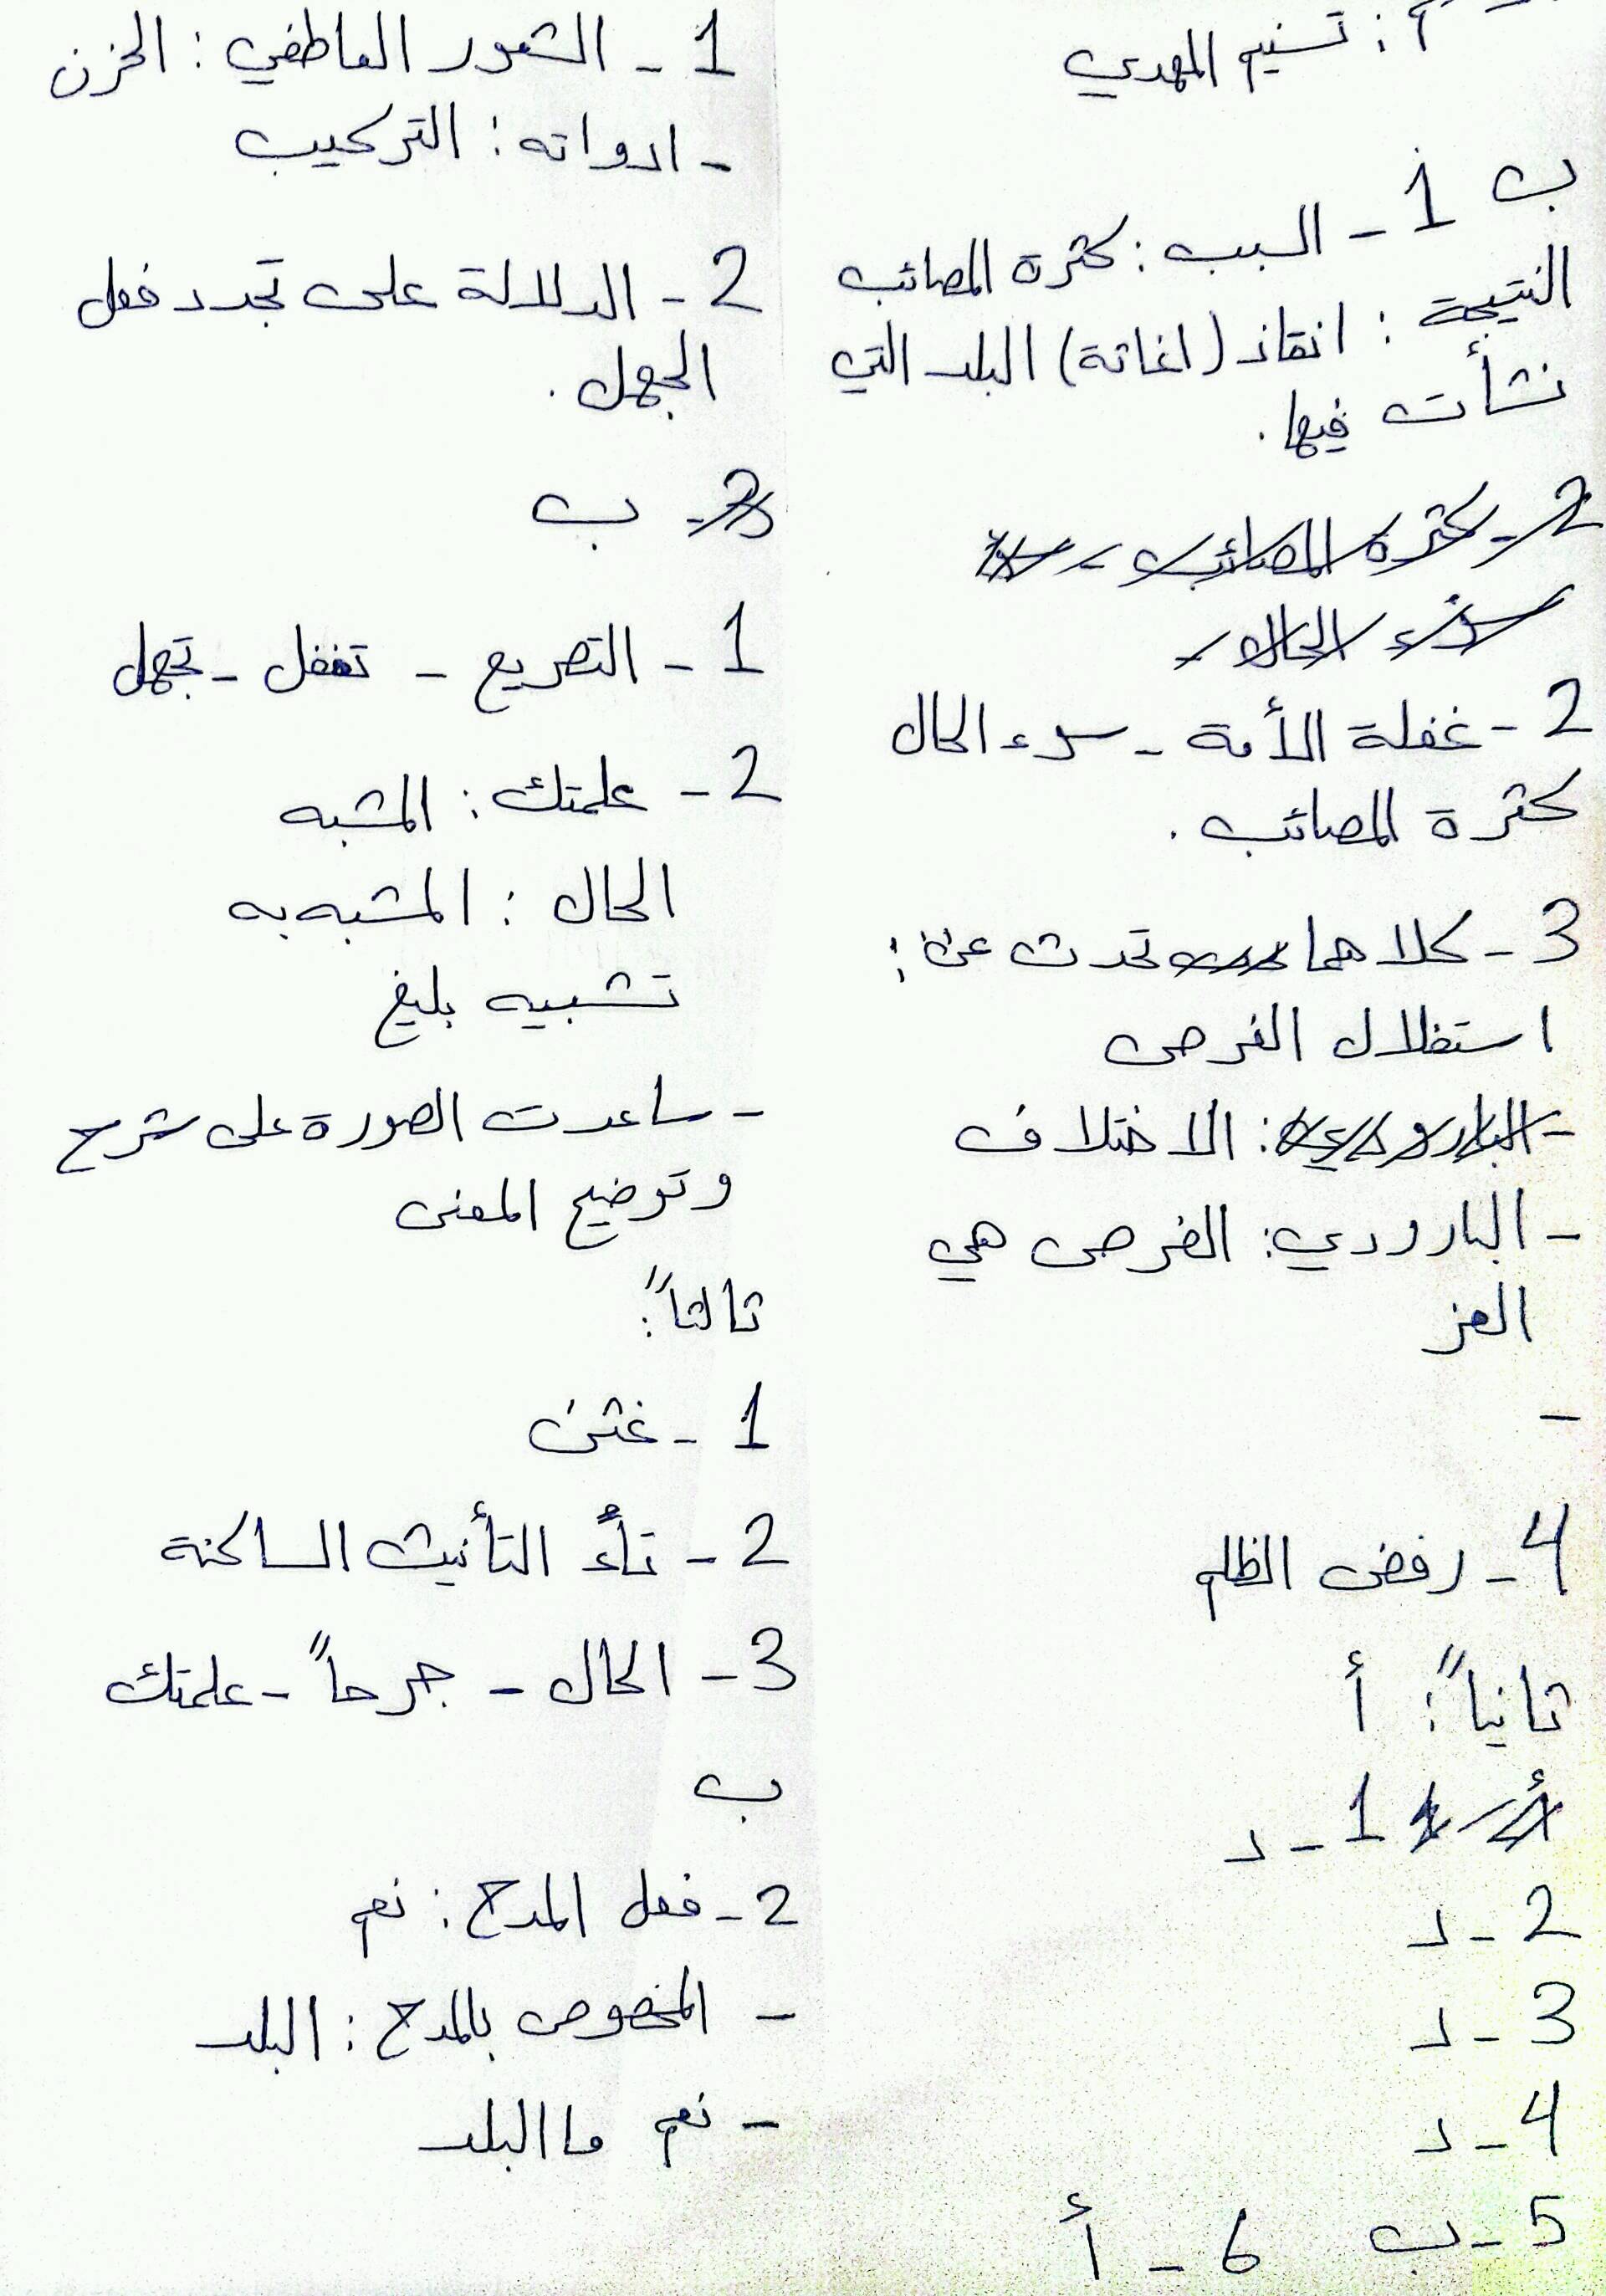 أ: تسنيم المهدي
ب 1 - السبب: كثرة المصائب
النتيجة: انقاذ (اغاثة) البلد التي
نشأت فيها.
2 - كثرة المصائب -
سوء الحال -
2 - غفلة الأمة - سوء الحال
كثرة المصائب.
3 - كلاهما تحدث عن:
استغلال الفرص
- البارودي: الاختلاف
- البارودي: الفرص هي
العز
-
4 - رفض الظلم
ثانياً: أ
1 - د
2 - د
3 - د
4 - د
5 - ب 6 - أ
1 - الشعور العاطفي: الحزن
- ادواته: التركيب
2 - الدلالة على تجدد فعل
الجهل.
ب
1 - التصريع - تغفل - تجهل
2 - علمتك: المشبه
الحال: المشبه به
تشبيه بليغ
- ساعدت الصورة على شرح
وتوضيح المعنى
ثالثاً:
1 - غثن
2 - تاءُ التأنيث الساكنة
3 - الحال - جرحاً - علمتك
ب
2 - فعل المدح: نعم
- المخصوص بالمدح: البلد
- نعم ما البلد